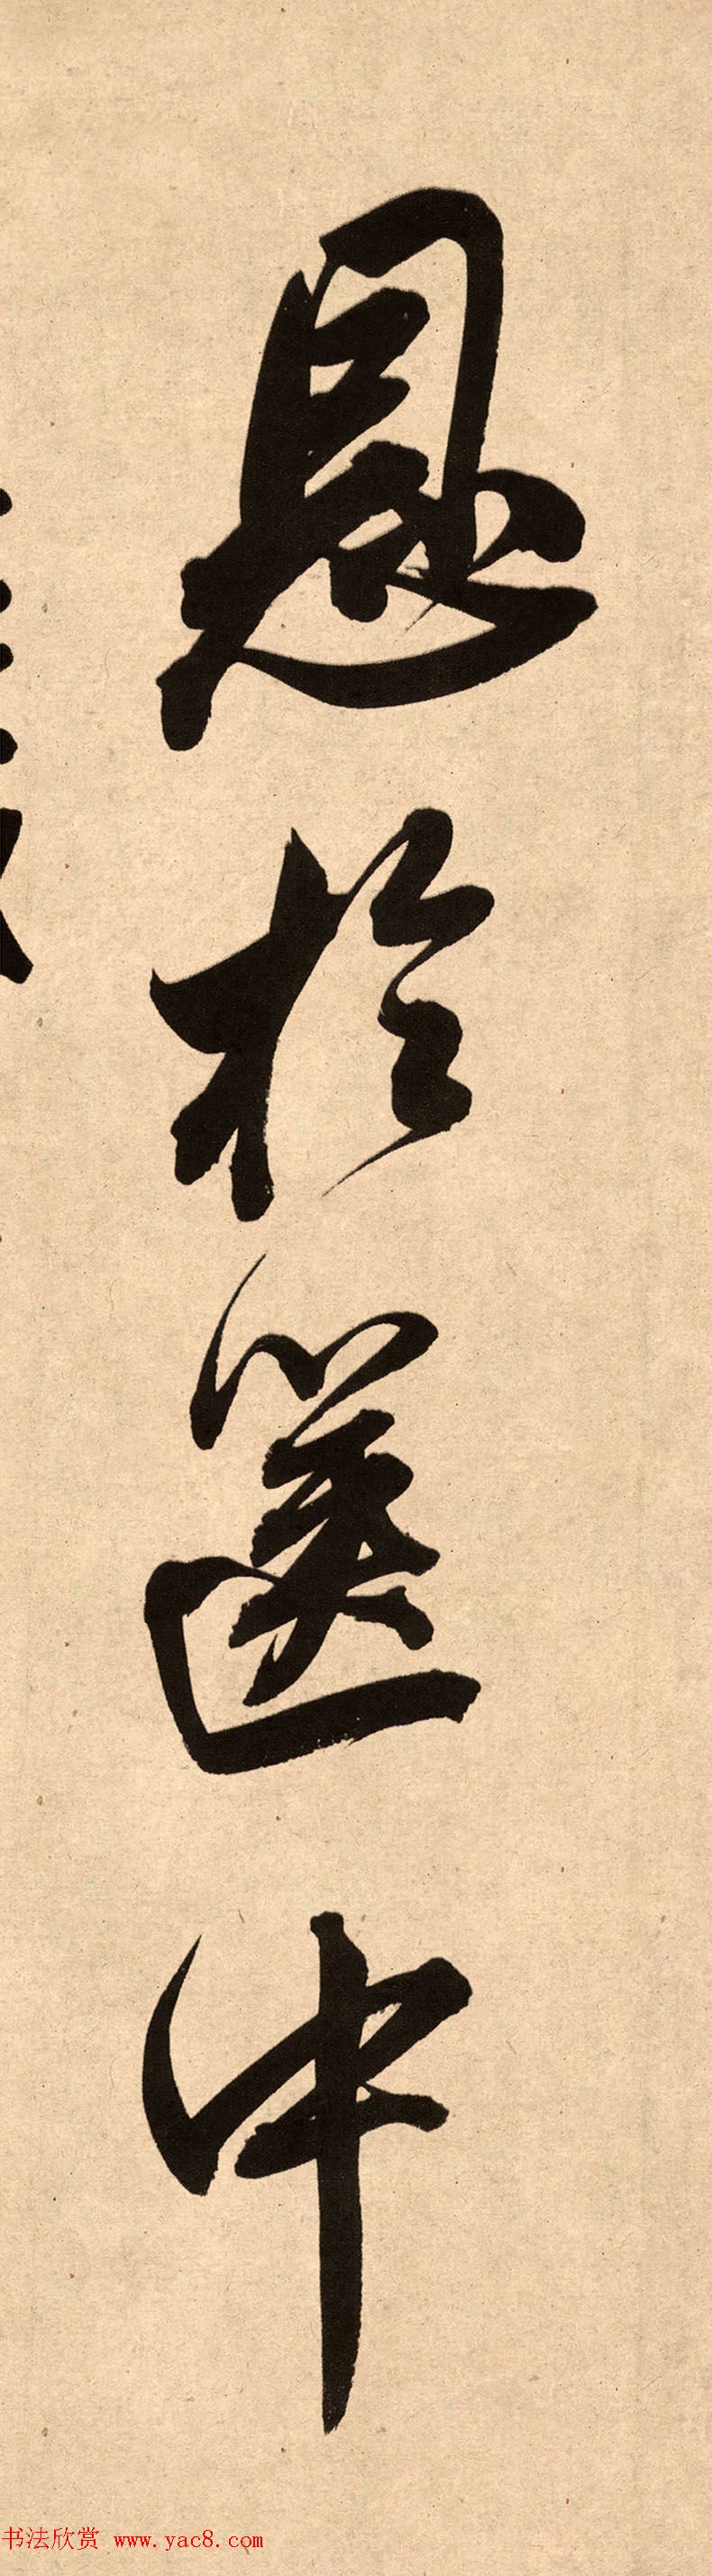 恩於選中
书法欣赏 www.yac8.com